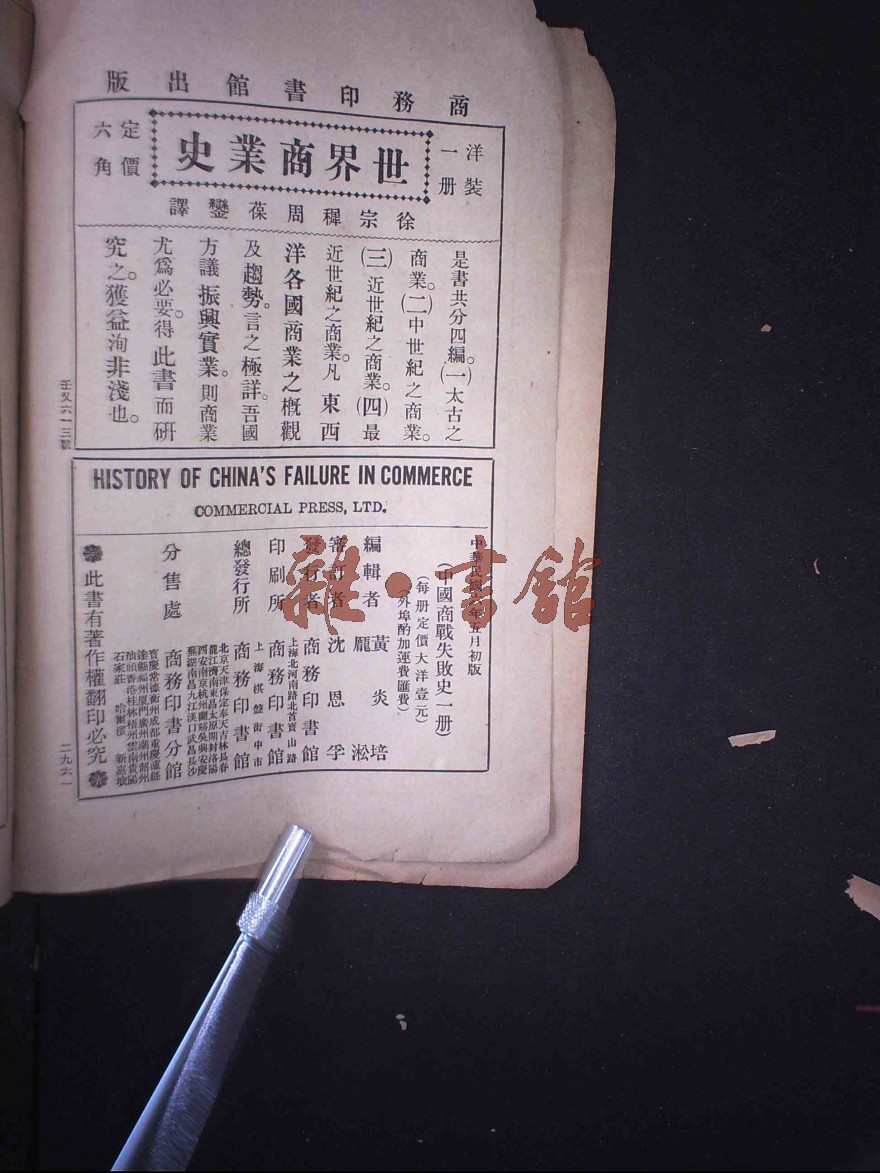 商務印書館出版
洋裝一册
世界商業史
定價六角
徐宗穉周葆鑾譯
是書共分四編。(一)太古之
商業。(二)中世紀之商業。
(三)近世紀之商業。(四)最
近世紀之商業。凡東西
洋各國商業之概觀
及趨勢。言之極詳。吾國
方議振興實業。則商業
尤爲必要。得此書而研
究之。獲益洵非淺也。
壬叉六一三號
HISTORY OF CHINA'S FAILURE IN COMMERCE
COMMERCIAL PRESS, LTD.
中華民國年五月初版
(中國商戰失敗史一册)
(每册定價大洋壹元)
(外埠酌加運費匯費)
編輯者 黃炎培
龎淞
審訂者 沈恩孚
發行者 商務印書館
上海北河南路北首寶山路
印刷所 商務印書館
上海棋盤街中市
總發行所 商務印書館
北京天津保定奉天吉林長春
龍江濟南東昌太原開封洛陽
西安南京杭州蘭谿吳興安慶
蕪湖南昌九江漢口武昌長沙
分售處 商務印書分館
寶慶常德衡州成都重慶瀘縣
達縣福州厦門廣州潮州韶州
汕頭香港桂林梧州雲南貴陽
石家莊 哈爾濱 新嘉坡
此書有著作權翻印必究
二九六一
雜·書館